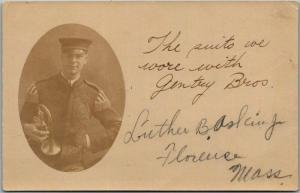 The suits we
wore with
Gentry Bros.
Luther B.
Florence
Mass.